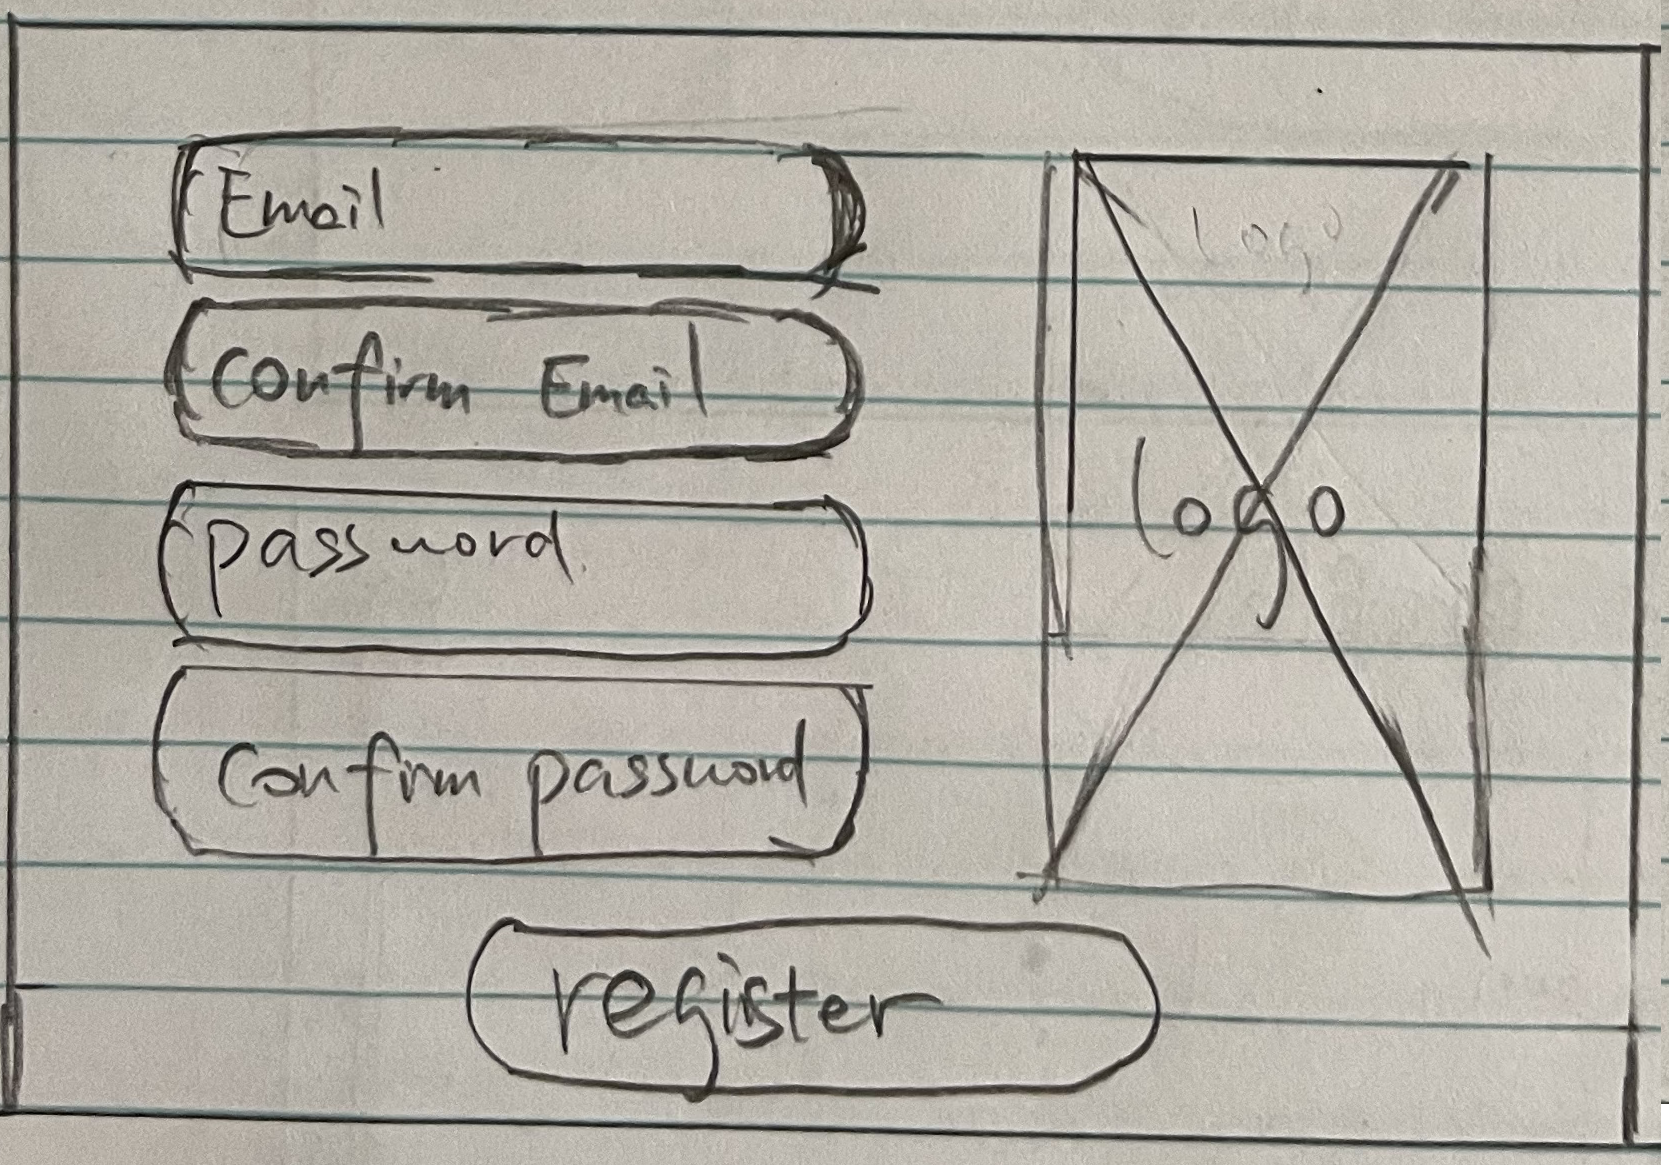 Email
Confirm Email
password
Confirm password
logo
logo
register